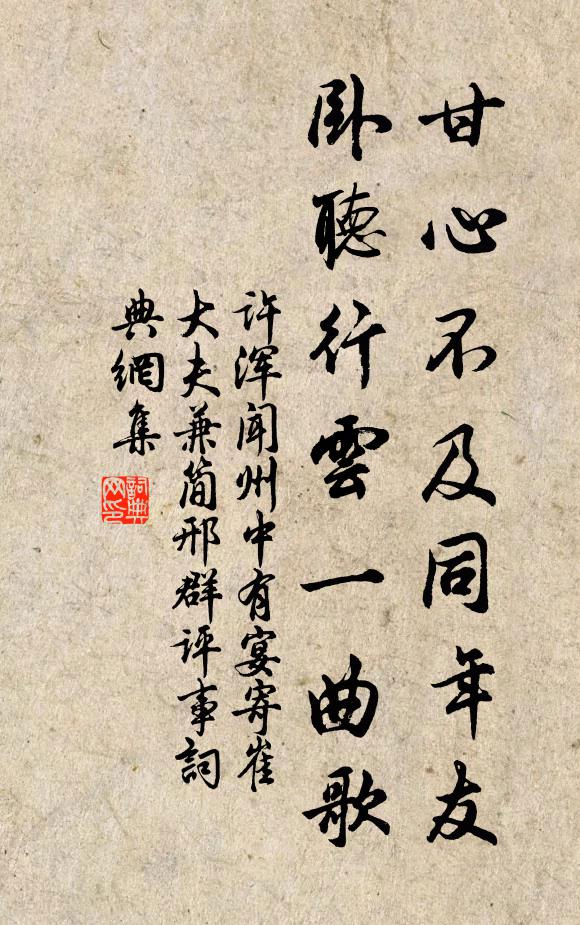 甘心不及同年友
卧聽行雲一曲歌
许浑闻州中有宴寄崔
大夫兼简邢群评事詞
典網集
詞典
网印